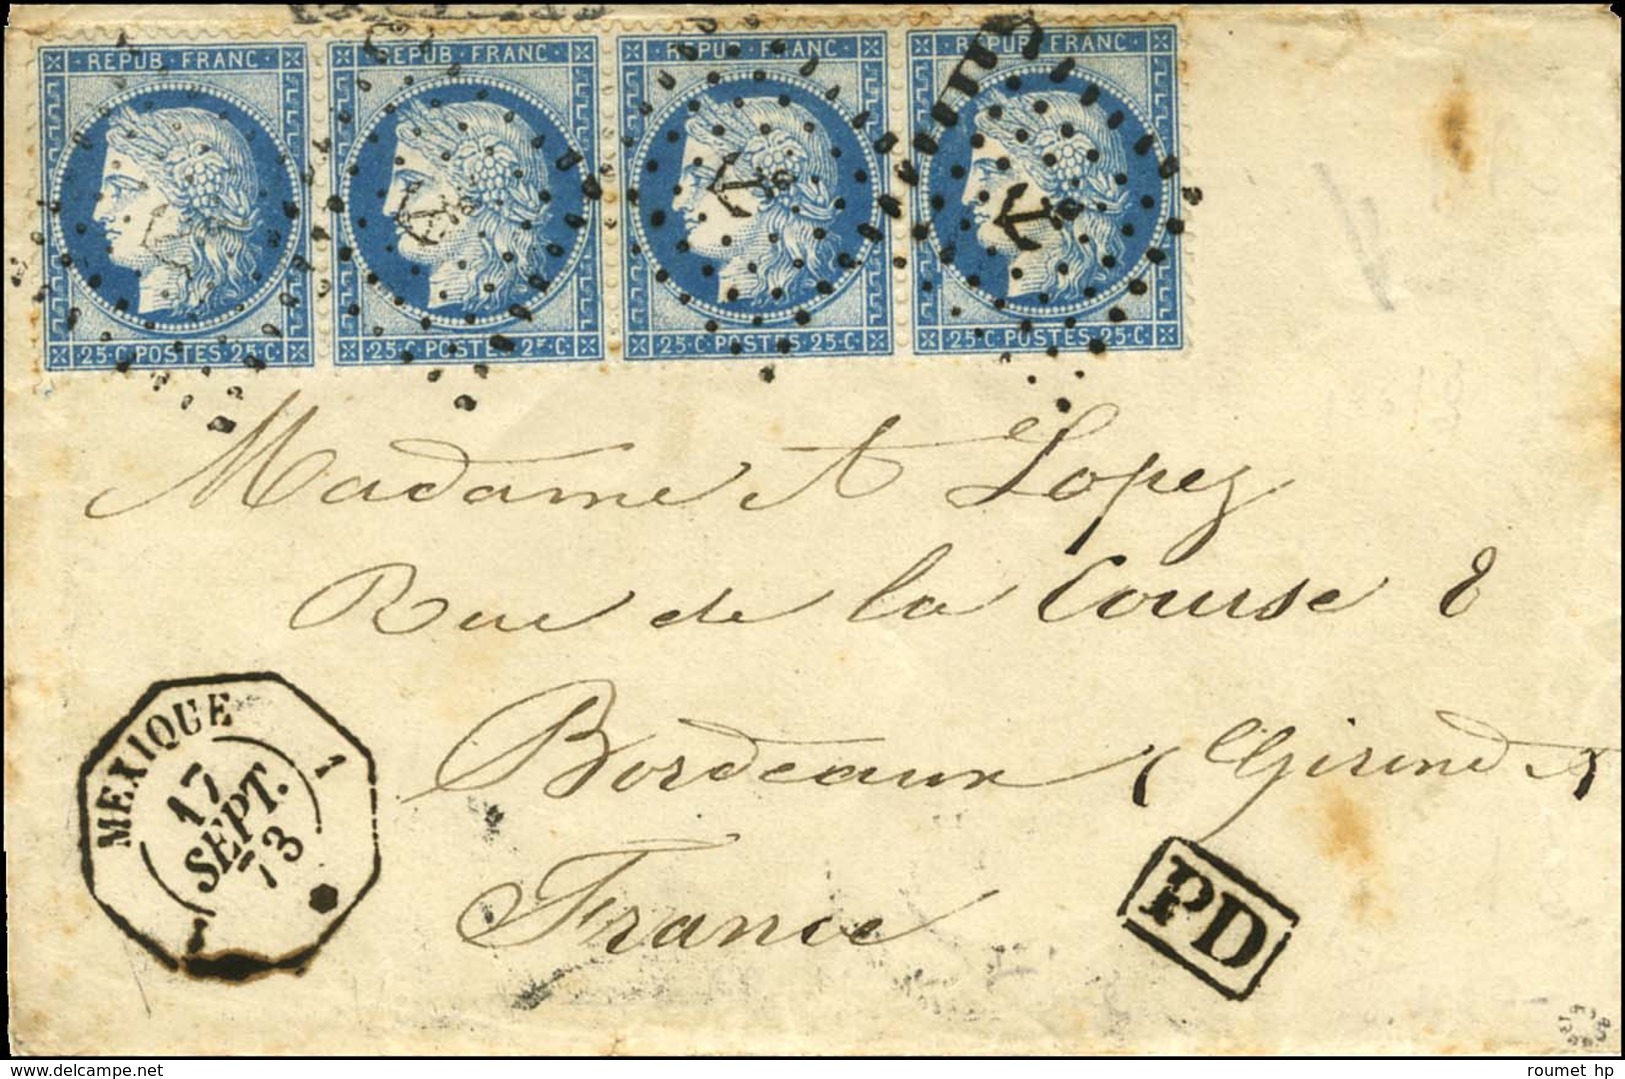 REPUB. FRANC. REPUB. FRANC. REPUB. FRANC. REPUB. FRANC.
25·C POSTES 25·C 25·C POSTES 2 ·C 25·C POSTES 25·C 25·C POSTES 25·C
Madame A Lopez
Rue de la Course 8
Bordeaux (Gironde)
France
MEXIQUE
17
SEPT.
73
PD
roumet hp